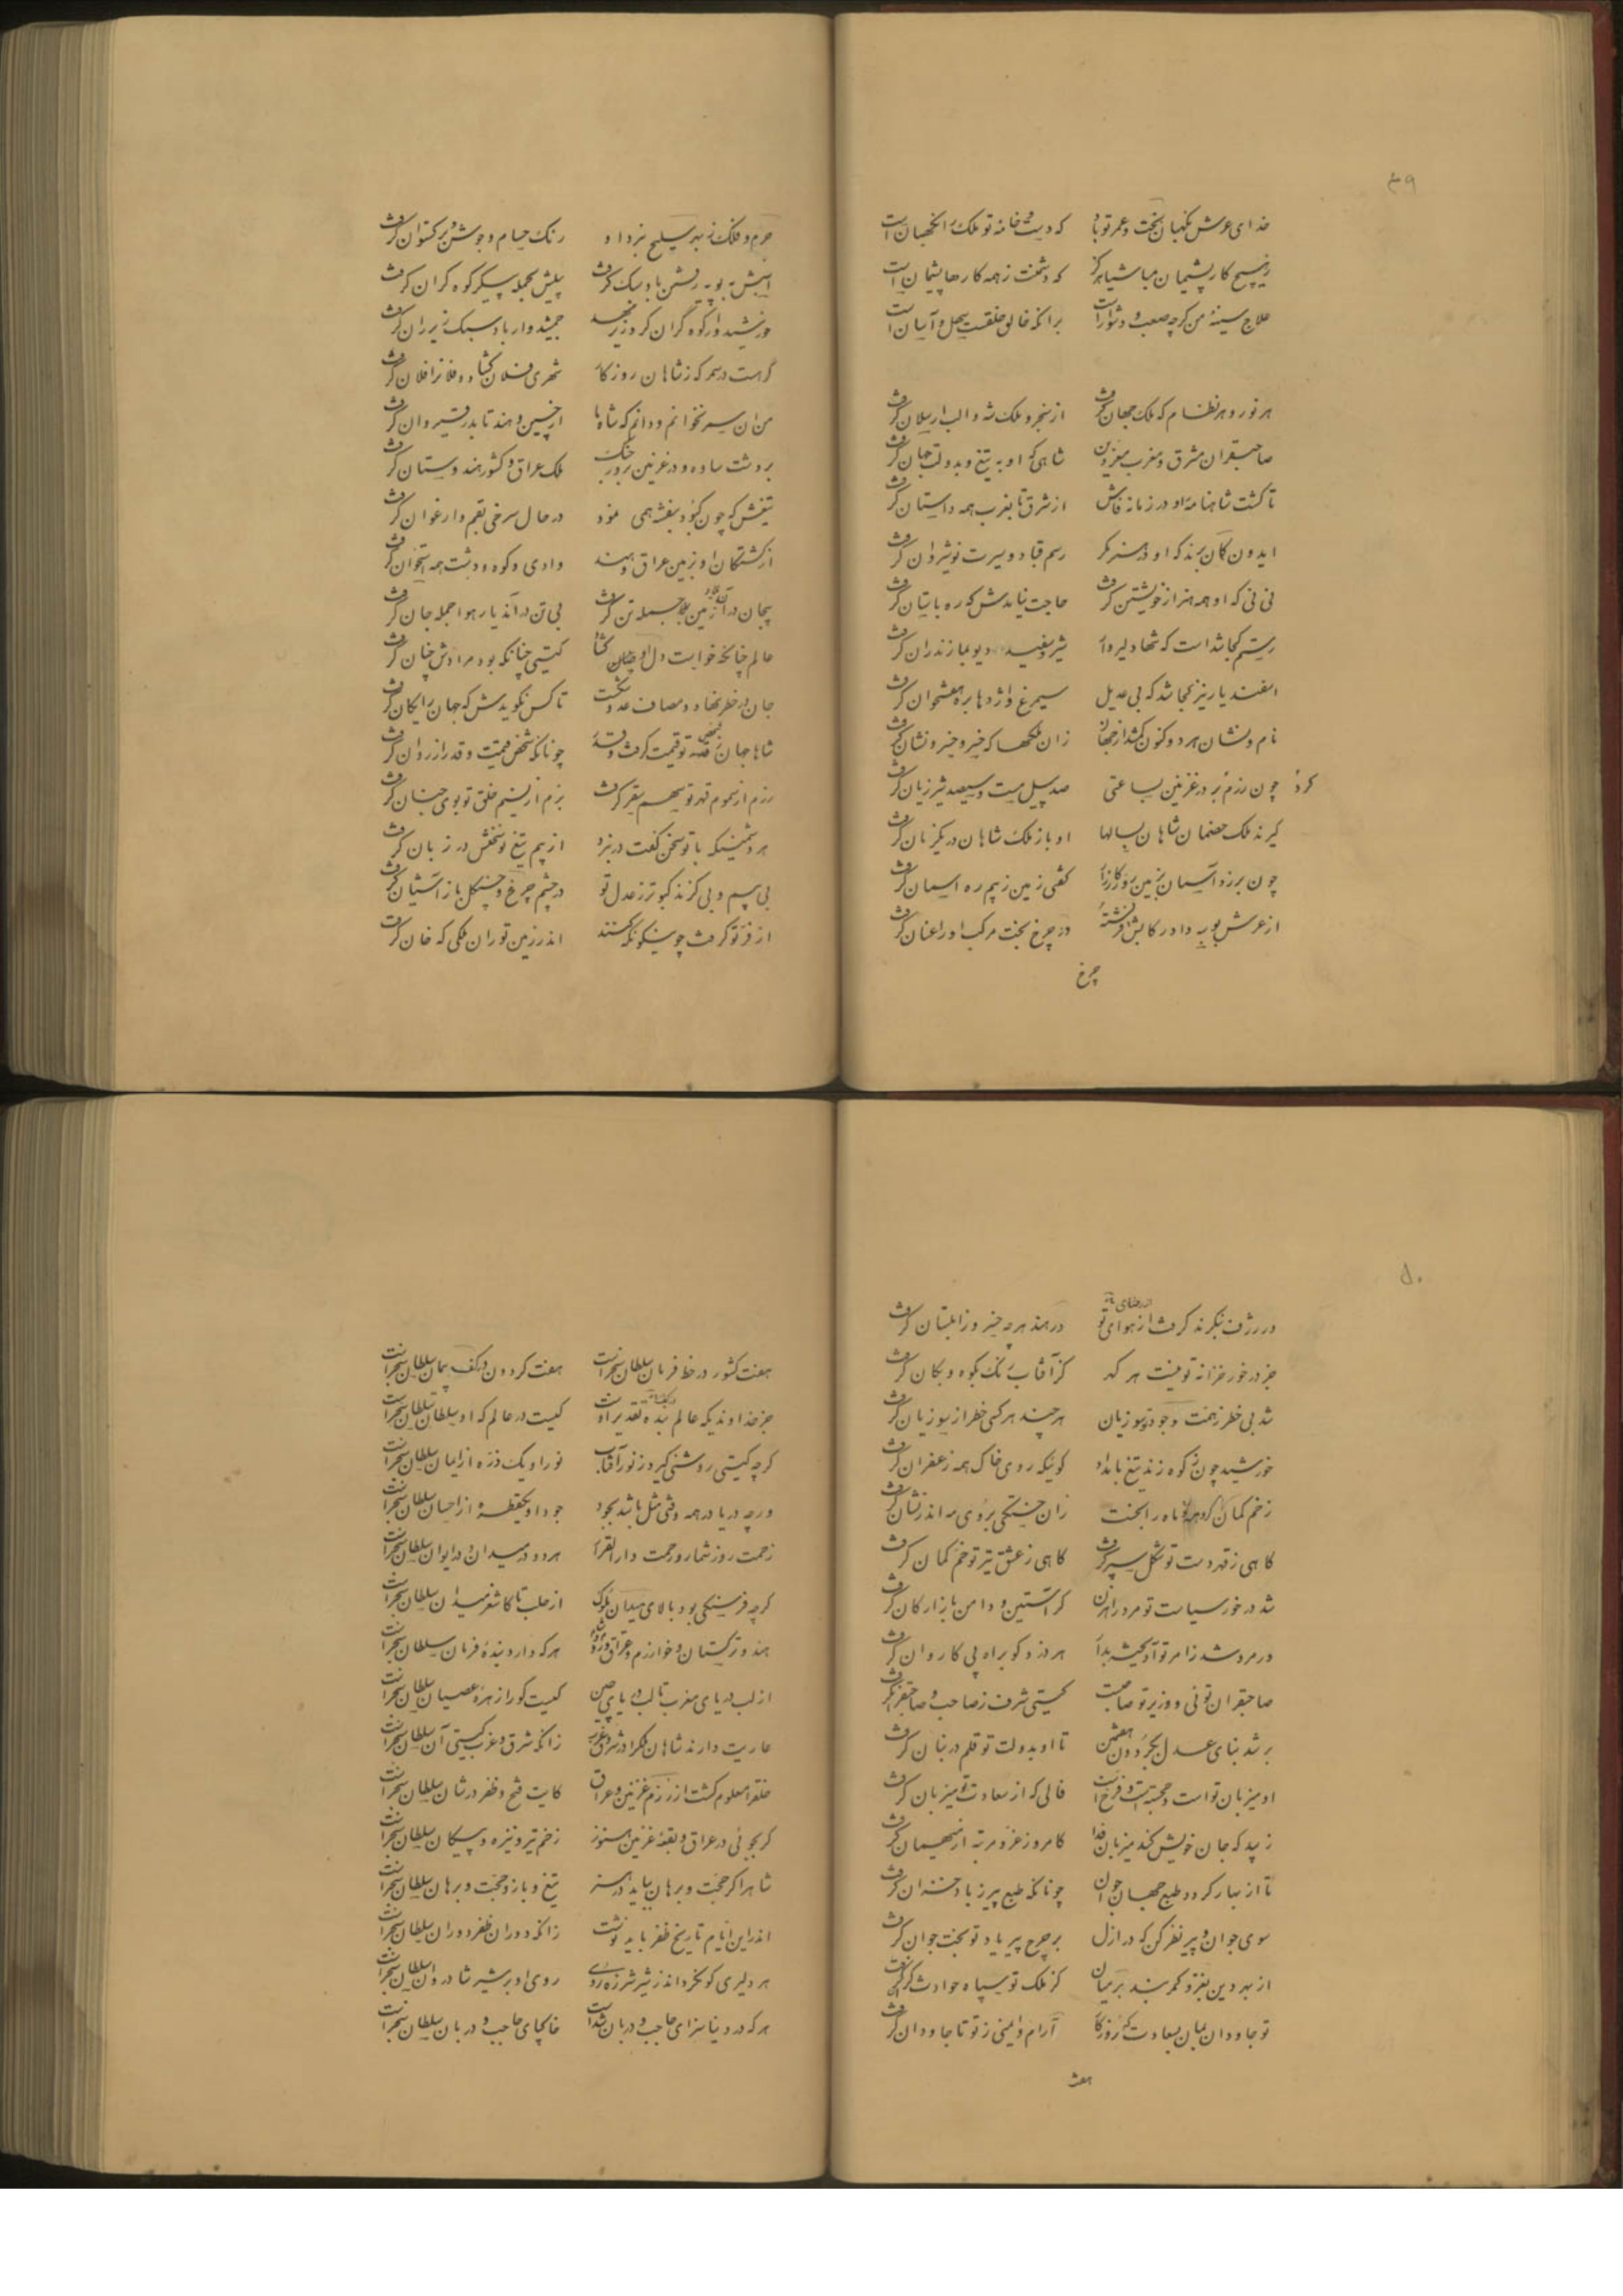 ۴۹
خدای عرش نگهبان بخت و عمر تو باد که دست و خامه تو ملک را نگهبان است
ز هیچ کار پشیمان مباش یا هرگز که دشمنت ز همه کارها پشیمان است
علاج سینه من گرچه صعب و دشوار است بر انکه خالق خلقست سهل و آسان است
هر نور و هر نظام که ملک جهان گرفت از سنجر و ملک شه و الب ارسلان گرفت
صاحبقران مشرق و مغرب معزدین شاهی که او به تیغ و بدولت جهان گرفت
تا گشت شاهنامه او در زمانه فاش از شرق تا بغرب همه داستان گرفت
ایدون گمان برند که او در هنر مگر رسم قباد و سیرت نوشروان گرفت
نی نی که او همه هنر از خویشتن گرفت حاجت نیامدش که ره باستان گرفت
رستم کجا شد است که تنها دلیروار شیر سفید و دیو بمازندران گرفت
اسفندیار نیز کجا شد که بی عدیل سیمرغ و اژدها بره هفتخوان گرفت
نام و نشان هر دو کنون گم شد از جهان زان ملکها که خیر و خیر و نشان گرفت
کرد چون رزم بر در غزنین بساعتی صد پیل مست و سیصد شیر ژیان گرفت
گیرند ملک خصمان شاهان بسالها او باز ملک شاهان در یکزمان گرفت
چون برزد آستین بزمین روز کارزار گفتی زمین ز بیم ره اسمان گرفت
از عرش بوسه داد رکابش فرشته وز چرخ بخت مرکب او را عنان گرفت
چرخ
جرم فلک ز بهر سلیح نبرد او رنگ حسام و جوشن و برگستوان گرفت
اسبش به پویه رفتن باد سبک گرفت پیلش بحمله پیکر کوه گران گرفت
خورشیدوار کوه گران کرد زیر نهد جمشیدوار باد سبک زیر ران گرفت
گر هست در سمر که ز شاهان روزگار شهری فلان گشاد و فلانرا فلان گرفت
من آن سیر نخوانم و دانم که شاه ما از چین و هند تا بدر قیروان گرفت
بر دشت ساوه و در غزنین بروز جنگ ملک عراق و کشور هندوستان گرفت
تیغش که چون کبود بنفشه همی نمود در حال سرخی بقم و ارغوان گرفت
از کشتگان او زمین عراق و هند وادی و کوه و دشت همه استخوان گرفت
بیجان در آن زمین بلا جمله تن گرفت بی تن در آن دیار هوا جمله جان گرفت
عالم چنانکه خواست دل او چنان گشاد گیتی چنانکه بود مرادش چنان گرفت
جان در خطر نهاد و مصاف عدو شکست تا کس نگویدش که جهان رایگان گرفت
شاها جهان بقبضه تو قیمت گرفت و قدر چونانکه شخص قیمت و قدر از روان گرفت
رزم از سموم قهر تو سهم سقر گرفت بزم از نسیم خلق تو بوی جنان گرفت
هر دشمنیکه با تو سخن گفت در نبرد از بیم تیغ تو سخنش در زبان گرفت
بی بیم و بی گزند کبوتر ز عدل تو در چشم چرغ و چنگل باز آشیان گرفت
از فر تو گرفت چو نیکو نگه کنند اندر زمین توران ملکی که خان گرفت
۵۰
از رضای تو
ور ژرف بنگرند گرفت از هوای تو در هند هر چه میر و زابلستان گرفت
جز در خور خزانه تو نیست هر گهر کز آفتاب رنگ بکوه و بکان گرفت
شد بی خطر ز همت و جود تو سوزیان هر چند هر کسی خطر از سوزیان گرفت
خورشید چون ز کوه زند تیغ بامداد گوئیکه روی خاک همه زعفران گرفت
زخم کمان گروهه تو ماه را بخست زان خستگی بروی مه اندر نشان گرفت
گاهی ز قهر دست تو شکل سپر گرفت گاهی ز عشق تیر تو خم کمان گرفت
شد در خور سیاست تو مرد راهزن کز آستین و دامن بازارگان گرفت
ور مرو شد ز امر تو آویخته بدار هر دزد کو براه پی کاروان گرفت
صاحبقران توئی و وزیر تو صاحب است گیتی شرف ز صاحب و صاحبقران گرفت
بر شد بنای عدل بگردون هفتمین تا او بدولت تو قلم در بنان گرفت
او میزبان تو است و خجسته است و فرخ است فالی که از سعادت تو میزبان گرفت
زیبد که جان خویش کند میزبان فدا کامروز عز و مرتبه از میهمان گرفت
تا از بهار گردد طبع جهان جوان چونانکه طبع پیر ز باد خزان گرفت
سوی جوان و پیر نظر کن که در ازل بر چرخ پیر یاد تو بخت جوان گرفت
از بهر دین بغزو کمر بند بر میان کز ملک تو سپاه حوادث کران گرفت
تو جاودان بمان بسعادت که روزگار آرام و ایمنی ز تو تا جاودان گرفت
هفت
هفت کشور در خط فرمان سلطان سنجر است هفت گردون در کف پیمان سلطان سنجر است
جز خداوندیکه عالم بنده تقدیر اوست کیست در عالم که او سلطان سلطان سنجر است
گرچه گیتی روشنی گیرد ز نور آفتاب نور او یک ذره از ایمان سلطان سنجر است
ورچه دریا در همه وقتی مثل باشد بجود جود او یکقطره از احسان سلطان سنجر است
زحمت روز شمار و رحمت دار القرار هر دو در میدان و در ایوان سلطان سنجر است
گرچه فرسنگی بود بالای میدان ملوک از حلب تا کاشغر میدان سلطان سنجر است
هند و ترکستان و خوارزم و عراق و روم و شام هر که دارد بنده فرمان سلطان سنجر است
از لب دریای مغرب تا لب دریای چین کیست کو را زهره عصیان سلطان سنجر است
عاریت دارند شاهان ملک را در شرق و غرب زانکه شرق و غرب گیتی آن سلطان سنجر است
خلق را معلوم گشت از رزم غزنین و عراق کایت فتح و ظفر در شان سلطان سنجر است
گر بجوئی در عراق و بقعه غزنین هنوز زخم تیر و نیزه و پیکان سلطان سنجر است
شاه را گر حجت و برهان بباید در هنر تیغ و بازو حجت و برهان سلطان سنجر است
اندر این ایام تاریخ ظفر باید نوشت زانکه دوران ظفر دوران سلطان سنجر است
هر دلیری کو نگرداند ز شیر شرزه روی روی او بر شیر شادروان سلطان سنجر است
هر که در دنیا سزای حاجب و دربان شد است خاکپای حاجب و دربان سلطان سنجر است